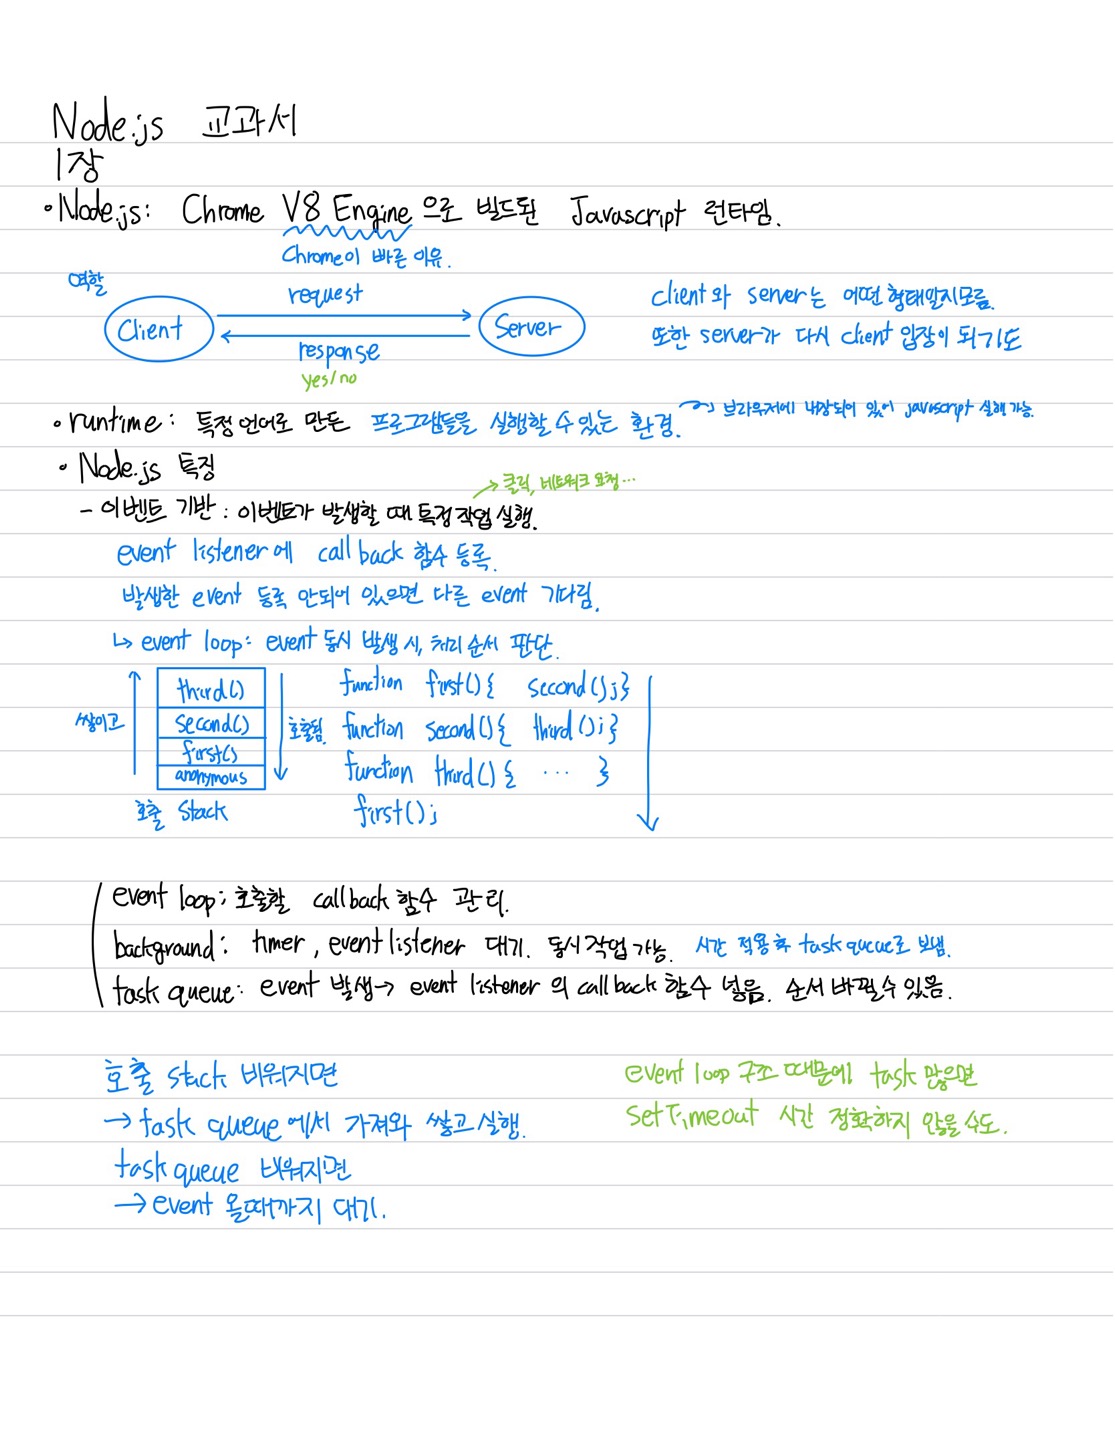 Node.js 교과서
1장
• Node.js: Chrome V8 Engine 으로 빌드된 Javascript 런타임.
Chrome이 빠른 이유.
역할
request
Client
Server
response
yes/no
client와 server는 어떤 형태일지모름.
또한 server가 다시 client 입장이 되기도
• runtime: 특정 언어로 만든 프로그램들을 실행할 수 있는 환경. → 브라우저에 내장되어 있어 javascript 실행 가능.
• Node.js 특징
→ 클릭, 네트워크 요청…
- 이벤트 기반 : 이벤트가 발생할 때 특정 작업 실행.
event listener에 callback 함수 등록.
발생한 event 등록 안되어 있으면 다른 event 기다림.
↳ event loop: event 동시 발생 시, 처리 순서 판단.
쌓이고
third()
second()
first()
anonymous
호출 Stack
호출됨.
function first(){ second();}
function second(){ third();}
function third(){ ... }
first();
event loop; 호출할 callback 함수 관리.
background: timer, event listener 대기. 동시 작업 가능. 시간 적용 후 task queue로 보냄.
task queue: event 발생 → event listener 의 callback 함수 넣음. 순서 바뀔수 있음.
호출 stack 비워지면
→ task queue 에서 가져와 쌓고 실행.
task queue 비워지면
→ event 올때까지 대기.
event loop 구조 때문에 task 많으면
SetTimeout 시간 정확하지 않을 수도.